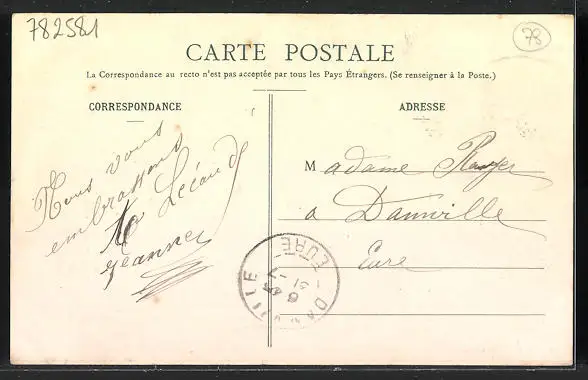 782581
78
CARTE POSTALE
La Correspondance au recto n'est pas acceptée par tous les Pays Étrangers. (Se renseigner à la Poste.)
CORRESPONDANCE
ADRESSE
Nous vous
embrassons
Jeanne
Madame
a Damville
Eure
DAMVILLE
EURE